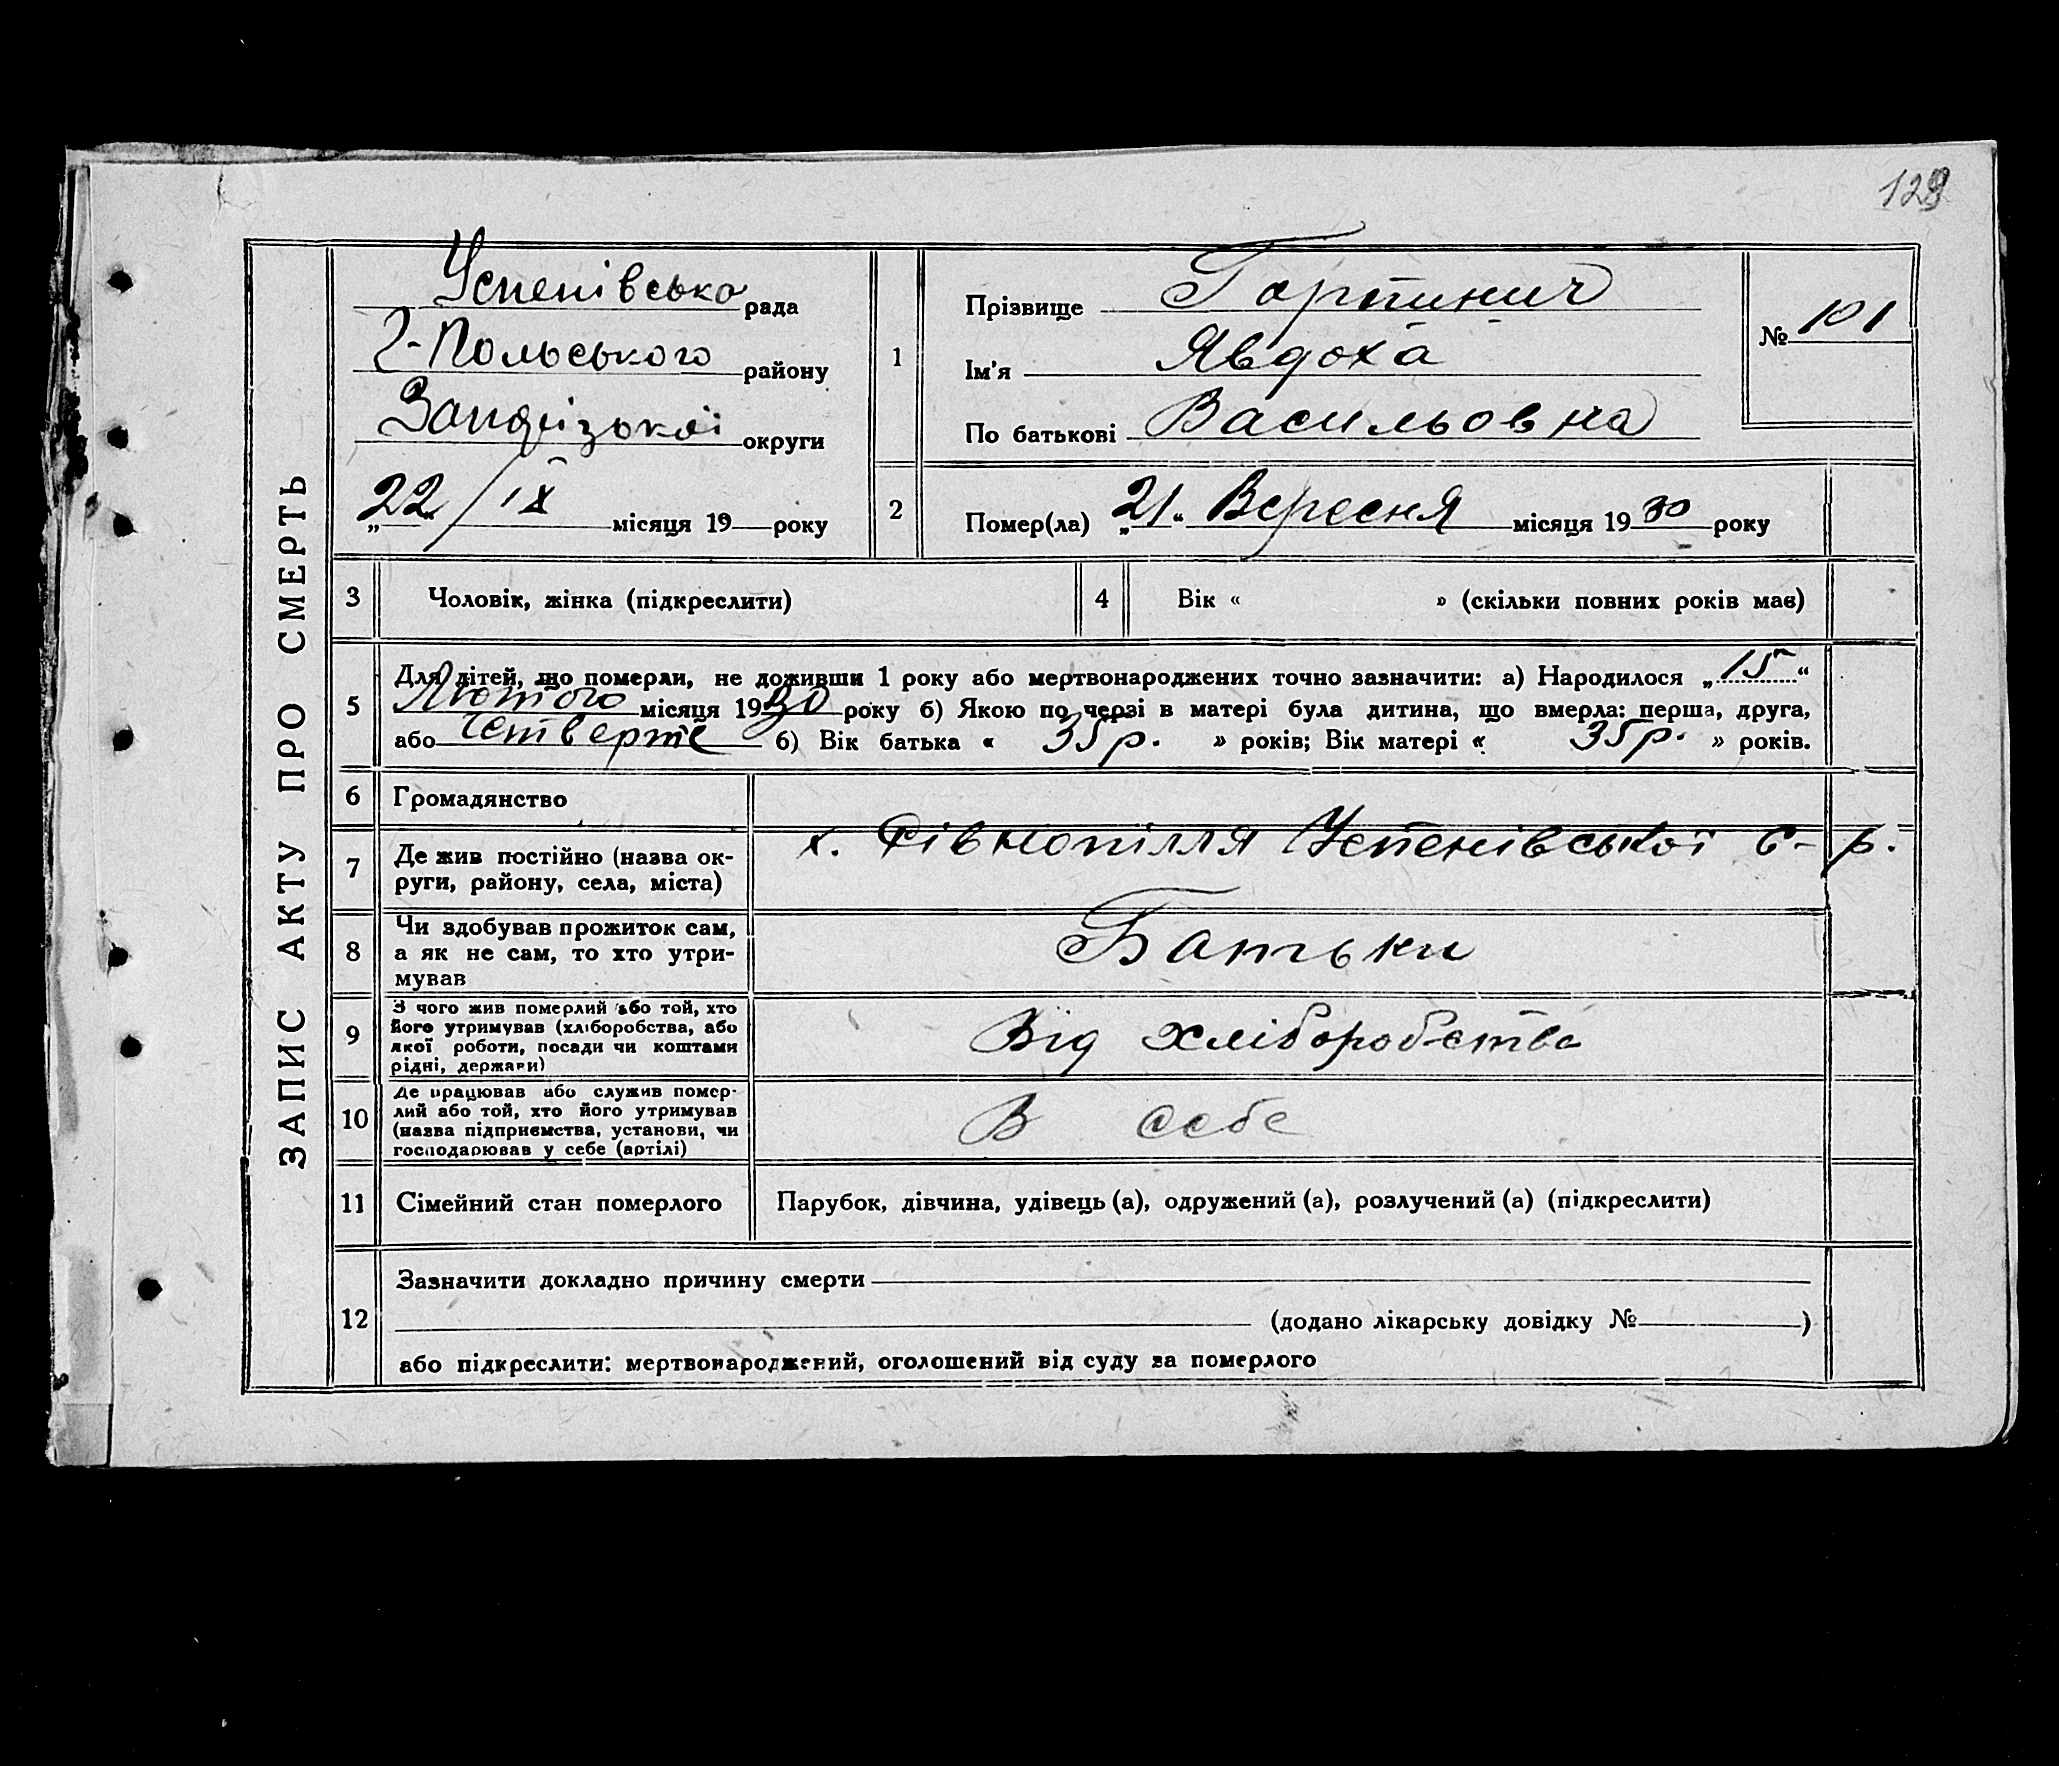 123
ЗАПИС АКТУ ПРО СМЕРТЬ
Успенівська рада
Г-Польського району
Запорізької округи
„22“ / IX місяця 19 року
1
Прізвище Горпинич
Ім'я Явдоха
По батькові Васильовна
№ 101
2
Помер(ла) „21“ Вересня місяця 1930 року
3 Чоловік, жінка (підкреслити)
4 Вік « » (скільки повних років має)
5 Для дітей, що померли, не доживши 1 року або мертвонароджених точно зазначити: а) Народилося „15“
Лютого місяця 1930 року б) Якою по черзі в матері була дитина, що вмерла: перша, друга,
або четверте б) Вік батька « 35 р. » років; Вік матері « 35 р. » років.
6 Громадянство
7 Де жив постійно (назва ок-
руги, району, села, міста)
х. Рівнопілля Успенівської с-р.
8 Чи здобував прожиток сам,
а як не сам, то хто утри-
мував
Батьки
9 З чого жив померлий або той, хто
його утримував (хліборобства, або
якої роботи, посади чи коштами
рідні, держави)
Від хліборобства
10 Де працював або служив помер-
лий або той, хто його утримував
(назва підприємства, установи, чи
господарював у себе (артілі)
В себе
11 Сімейний стан померлого Парубок, дівчина, удівець (а), одружений (а), розлучений (а) (підкреслити)
12 Зазначити докладно причину смерти
(додано лікарську довідку № )
або підкреслити: мертвонароджений, оголошений від суду за померлого